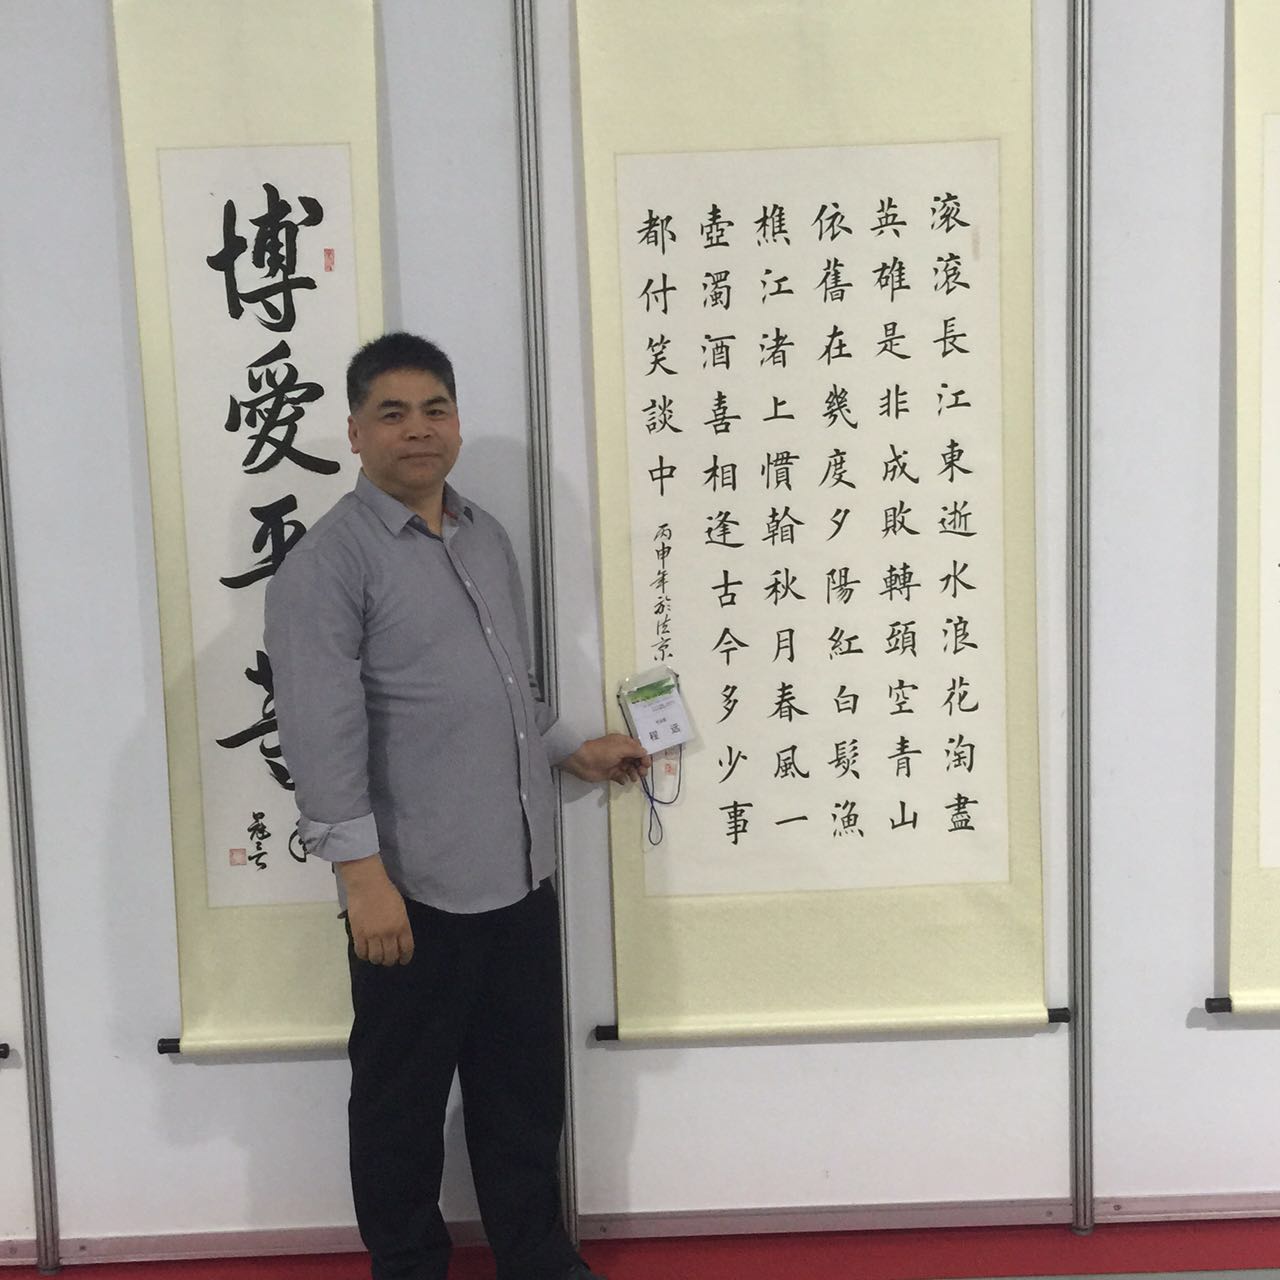 滚滾長江東逝水浪花淘盡
英雄是非成敗轉頭空青山
依舊在幾度夕陽紅白髮漁
樵江渚上慣看秋月春風一
壺濁酒喜相逢古今多少事
都付笑談中
丙申年於北京
程远
博愛